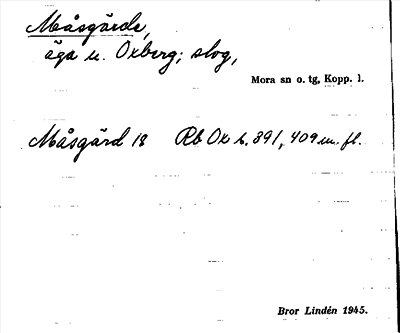 Måsgärde,
äga u. Oxberg; slog,
Mora sn o. tg, Kopp. l.
Måsgärd 18 Rb Ox s. 891, 409 m. fl.
Bror Lindén 1945.